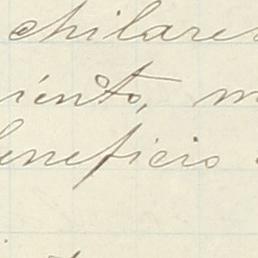 chilares
iento, m
beneficio